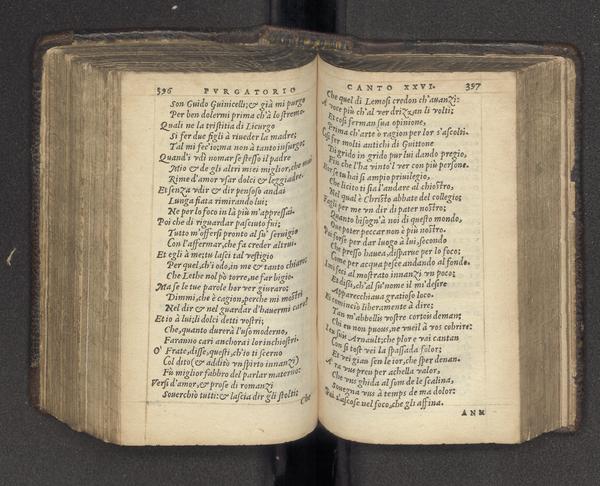 396 PVRGATORIO
Son Guido Guinicelli; & già mi purgo
Per ben dolermi prima ch'à lo stremo.
Quali ne la tristitia di Licurgo
Si fer due figli à riueder la madre;
Tal mi fec'io; ma non à tanto insurgo;
Quand'i vdi nomar se stesso il padre
Mio & de gli altri miei miglior, che mai
Rime d'amor vsar dolci & leggiadre.
Et senza vdir & dir pensoso andai
Lunga fiata rimirando lui;
Ne per lo foco in là più m'appressai.
Poi che di riguardar pasciuto fui;
Tutto m'offersi pronto al su' seruigio
Con l'affermar, che fa creder altrui.
Et egli à me; tu lasci tal vestigio
Per quel, ch'i odo, in me & tanto chiaro;
Che Lethe nol pò torre, ne far bigio.
Ma se le tue parole hor ver giuraro;
Dimmi, che è cagion, perche mi mostri
Nel dir & nel guardar d'hauermi caro?
Et io à lui; li dolci detti vostri;
Che, quanto durerà l'uso moderno,
Faranno cari anchora i lor inchiostri.
O' Frate, disse, questi, ch'io ti scerno
Col dito (& additò vn spirto innanzi)
Fù miglior fabbro del parlar materno:
Versi d'amor, & prose di romanzi
Souerchiò tutti: & lascia dir gli stolti;
Che
CANTO XXVI. 397
Che quel di Lemosì credon ch'auanzi:
A voce più ch'al ver drizzan li volti;
Et così ferman sua opinione,
Prima ch'arte ò ragion per lor s'ascolti.
Così fer molti antichi di Guittone
Di grido in grido pur lui dando pregio,
Fin che l'ha vinto'l ver con più persone.
Hor se tu hai sì ampio priuilegio,
Che licito ti sia l'andare al chiostro,
Nel qual è Christo abbate del collegio;
Fagli per me vn dir di pater nostro;
Quanto bisogn'à noi di questo mondo,
Oue poter peccar non è più nostro.
Poi forse per dar luogo à lui, secondo
Che presso hauea, disparue per lo foco;
Come per acqua pesce andando al fondo.
I mi feci al mostrato innanzi vn poco;
Et dissi, ch'al su' nome il mi' desire
Apparecchiaua gratioso loco.
Ei cominciò liberamente à dire;
Tan m'abbellis vostre cortois deman;
Chi eu non puous, ne vueil à vos cobrire:
Ieu suis Arnault; che plor e vai cantan
Con si tost vei la spassada folor;
Et vei gian sen le ior, che sper denan.
A ra vus preu per achella valor,
Che vus ghida al som de le scalina,
Souegna vus à temps de ma dolor:
Poi s'ascose nel foco, che gli affina.
ANM